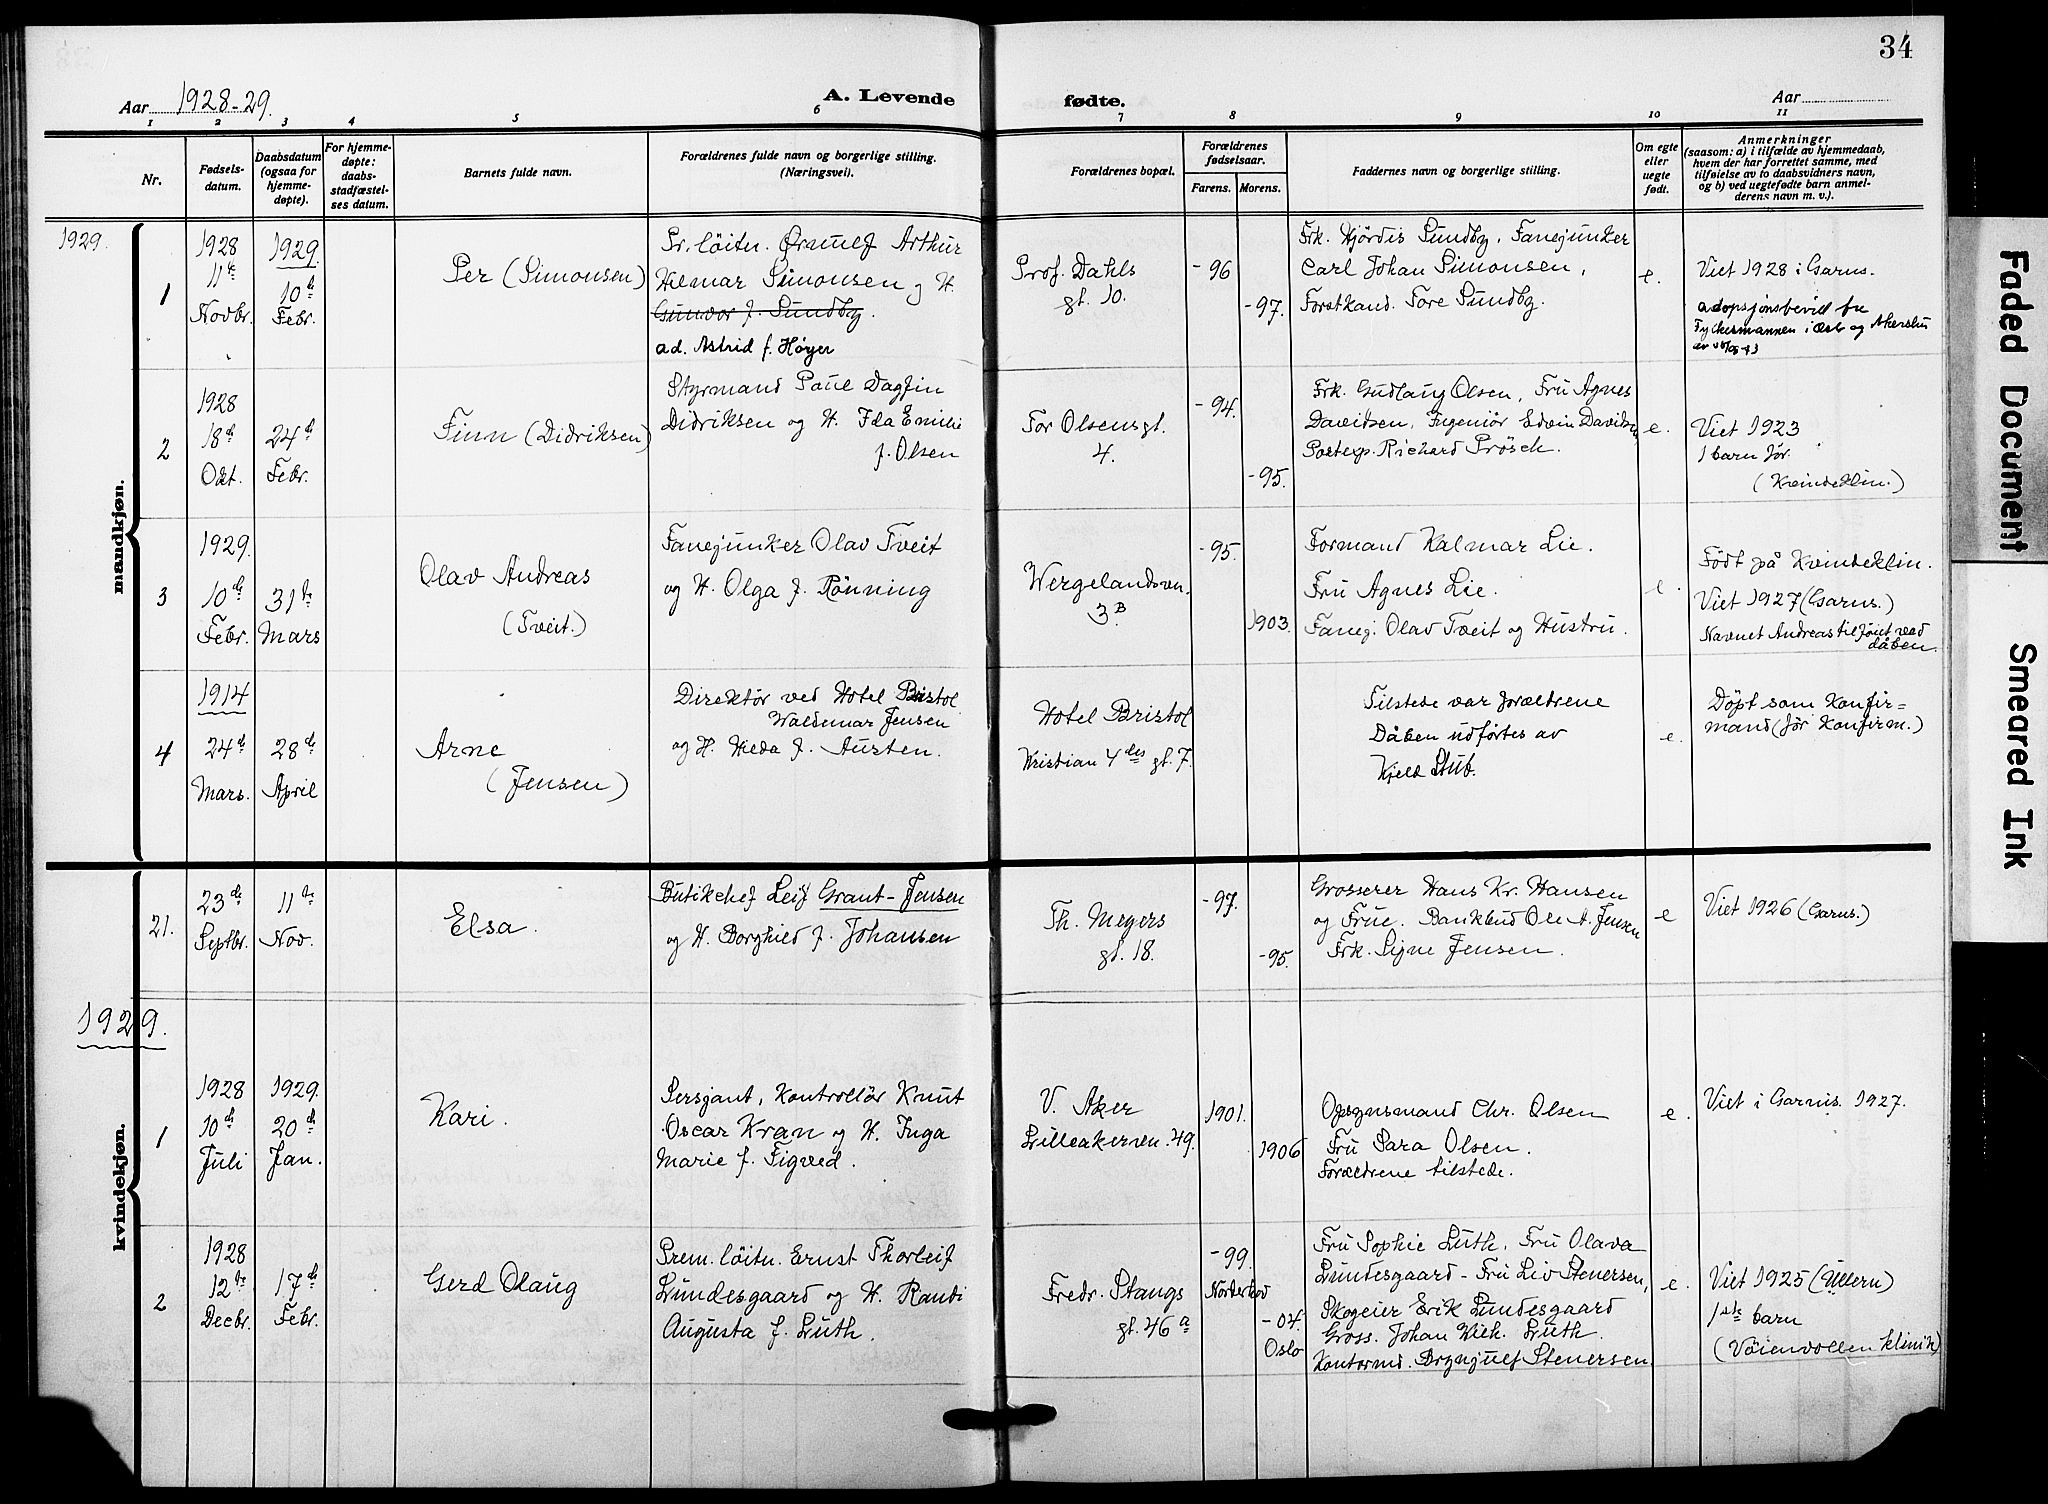 34
Aar 1928-29.
A. Levende fødte.
Aar
1 2 3 4 5 6 7 8 9 10 11
Nr.
Fødsels-
datum.
Daabsdatum
(ogsaa for
hjemme-
døpte).
For hjemme-
døpte:
daabs-
stadfæstel-
ses datum.
Barnets fulde navn.
Forældrenes fulde navn og borgerlige stilling.
(Næringsvei).
Forældrenes bopæl.
Forældrenes
fødselsaar.
Farens. Morens.
Faddernes navn og borgerlige stilling.
Om egte
eller
uegte
født.
Anmerkninger
(saasom: a) i tilfælde av hjemmedaab,
hvem der har forrettet samme, med
tilføielse av to daabsvidners navn,
og b) ved uegtefødte barn anmel-
derens navn m. v.).
mandkjøn.
1929.
1
1928
11te
Novbr.
1929.
10de
Febr.
Per (Simonsen)
Pr. löitn. Ørnulf Arthur
Hilmar Simonsen og H.
Gunvor f. Sundby.
ad. Astrid f. Høyer
Prof. Dahls
gt. 10.
-96
-97.
Frk. Hjördis Sundby, Fanejunker
Carl Johan Simonsen,
Forstkand. Tore Sundby.
e.
Viet 1928 i Garns.
adopsjonsbevill fra
Fylkesmannen i Oslo og Akershus
2
1928
18de
Okt.
24de
Febr.
Finn (Didriksen)
Styrmand Paul Dagfin
Didriksen og H. Ida Emilie
f. Olsen
Tor Olsensgt.
4.
-94.
-95.
Frk. Gudlaug Olsen, Fru Agnes
Davidsen, Ingeniör Edvin Davidsen
Postexp. Richard Prösch.
e.
Viet 1923
1 barn för.
(Kvindeklin.)
3
1929.
10de
Febr.
31te
Mars
Olav Andreas
(Tveit.)
Fanejunker Olav Tveit
og H. Olga f. Rönning
Wergelandsvn.
3B.
-95.
1903.
Formand Halmar Lie.
Fru Agnes Lie.
Fanej. Olav Tveit og Hustru.
e.
Födt på Kvindeklin.
Viet 1927 (Garns.)
Navnet Andreas tilföiet ved
dåben.
4
1914
24de
Mars.
28de
April
Arne
(Jensen)
Direktör ved Hotel Bristol
Waldemar Jensen
og H. Heda f. Austen.
Hotel Bristol
Kristian 4des gt. 7.
Tilstede var forældrene
Dåben udförtes av
Kjeld Stub.
e.
Döpt som Konfir=
mand (för Konfirm.)
kvindekjøn.
21.
23de
Septbr.
11te
Nov.
Elsa.
Butikchef Leif Grant-Jensen
og H. Borghild f. Johansen
Th. Meyers
gt. 18.
-97.
-95.
Grosserer Hans Kr. Hansen
og Frue. Bankbud Ole A. Jensen
Frk. Signe Jensen.
e
Viet 1926 (Garns.)
1929.
1
1928
10de
Juli
1929.
20de
Jan.
Kari.
Sersjant, Kontrollör Knut
Oscar Kran og H. Inga
Marie f. Figved.
V. Aker
Lilleakerven. 49.
1901.
1906
Opsynsmand Chr. Olsen
Fru Sara Olsen.
Forældrene tilstede.
e.
Viet i Garns. 1927.
2
1928
12te
Decbr.
17de
Febr.
Gerd Olaug
Prem. löitn. Ernst Thorleif
Lundesgaard og H. Randi
Augusta f. Luth.
Fredr. Stangs
gt. 46a
-99.
Norderhov
-04.
Oslo
Fru Sophie Luth, Fru Olava
Lundesgaard - Fru Liv Stenersen,
Skogeier Erik Lundesgaard
Gross. Johan Wilh. Luth.
Kontormd. Brynjulf Stenersen
e.
Viet 1925 (Ullern)
1ste barn
(Vöienvollen klinik)
Faded Document
Smeared Ink